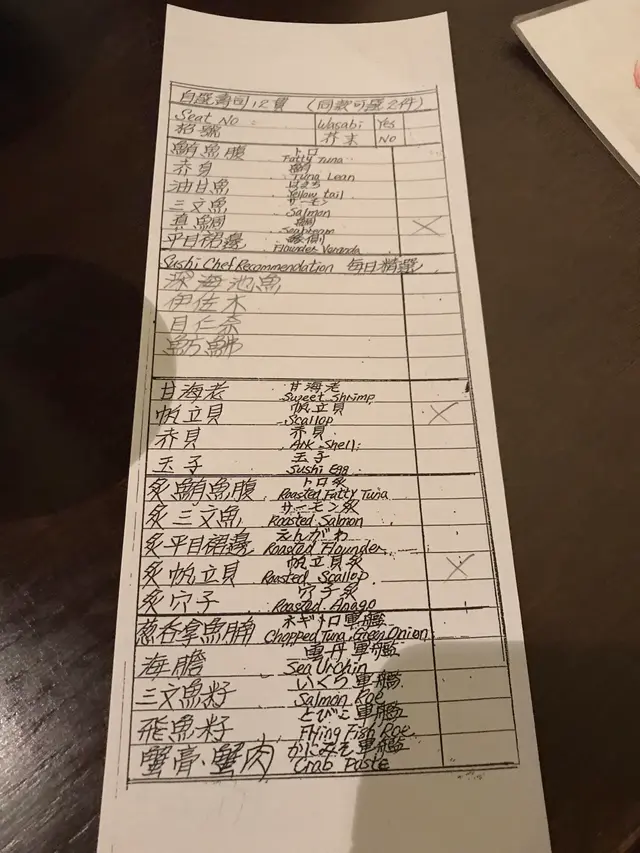 自選壽司12貫 (同款可選2件)
Seat No :
枱號
Wasabi Yes
芥末 No
鮪魚腹 トロ
Fatty Tuna
赤身 鮪
Tuna Lean
油甘魚 はまち
Yellow tail
三文魚 サーモン
Salmon
真鯛 鯛
Seabream
平目裙邊 緣側
Flounder Veranda
Sushi Chef Recommendation 每日精選
深海池魚
伊佐木
目仁奈
魴鮄
甘海老 甘海老
Sweet Shrimp
帆立貝 帆立貝
Scallop
赤貝 赤貝
Ark Shell
玉子 玉子
Sushi Egg
炙鮪魚腹 トロ炙
Roasted Fatty Tuna
炙三文魚 サーモン炙
Roasted Salmon
炙平目裙邊 えんがわ
Roasted Flounder
炙帆立貝 帆立貝炙
Roasted Scallop
炙穴子 穴子炙
Roasted Anago
葱吞拿魚腩 ネギトロ軍艦
Chopped Tuna, Green Onion
海膽 雲丹軍艦
Sea Urchin
三文魚籽 いくら軍艦
Salmon Roe
飛魚籽 とびこ軍艦
Flying Fish Roe
蟹膏·蟹肉 かにみそ軍艦
Crab Paste